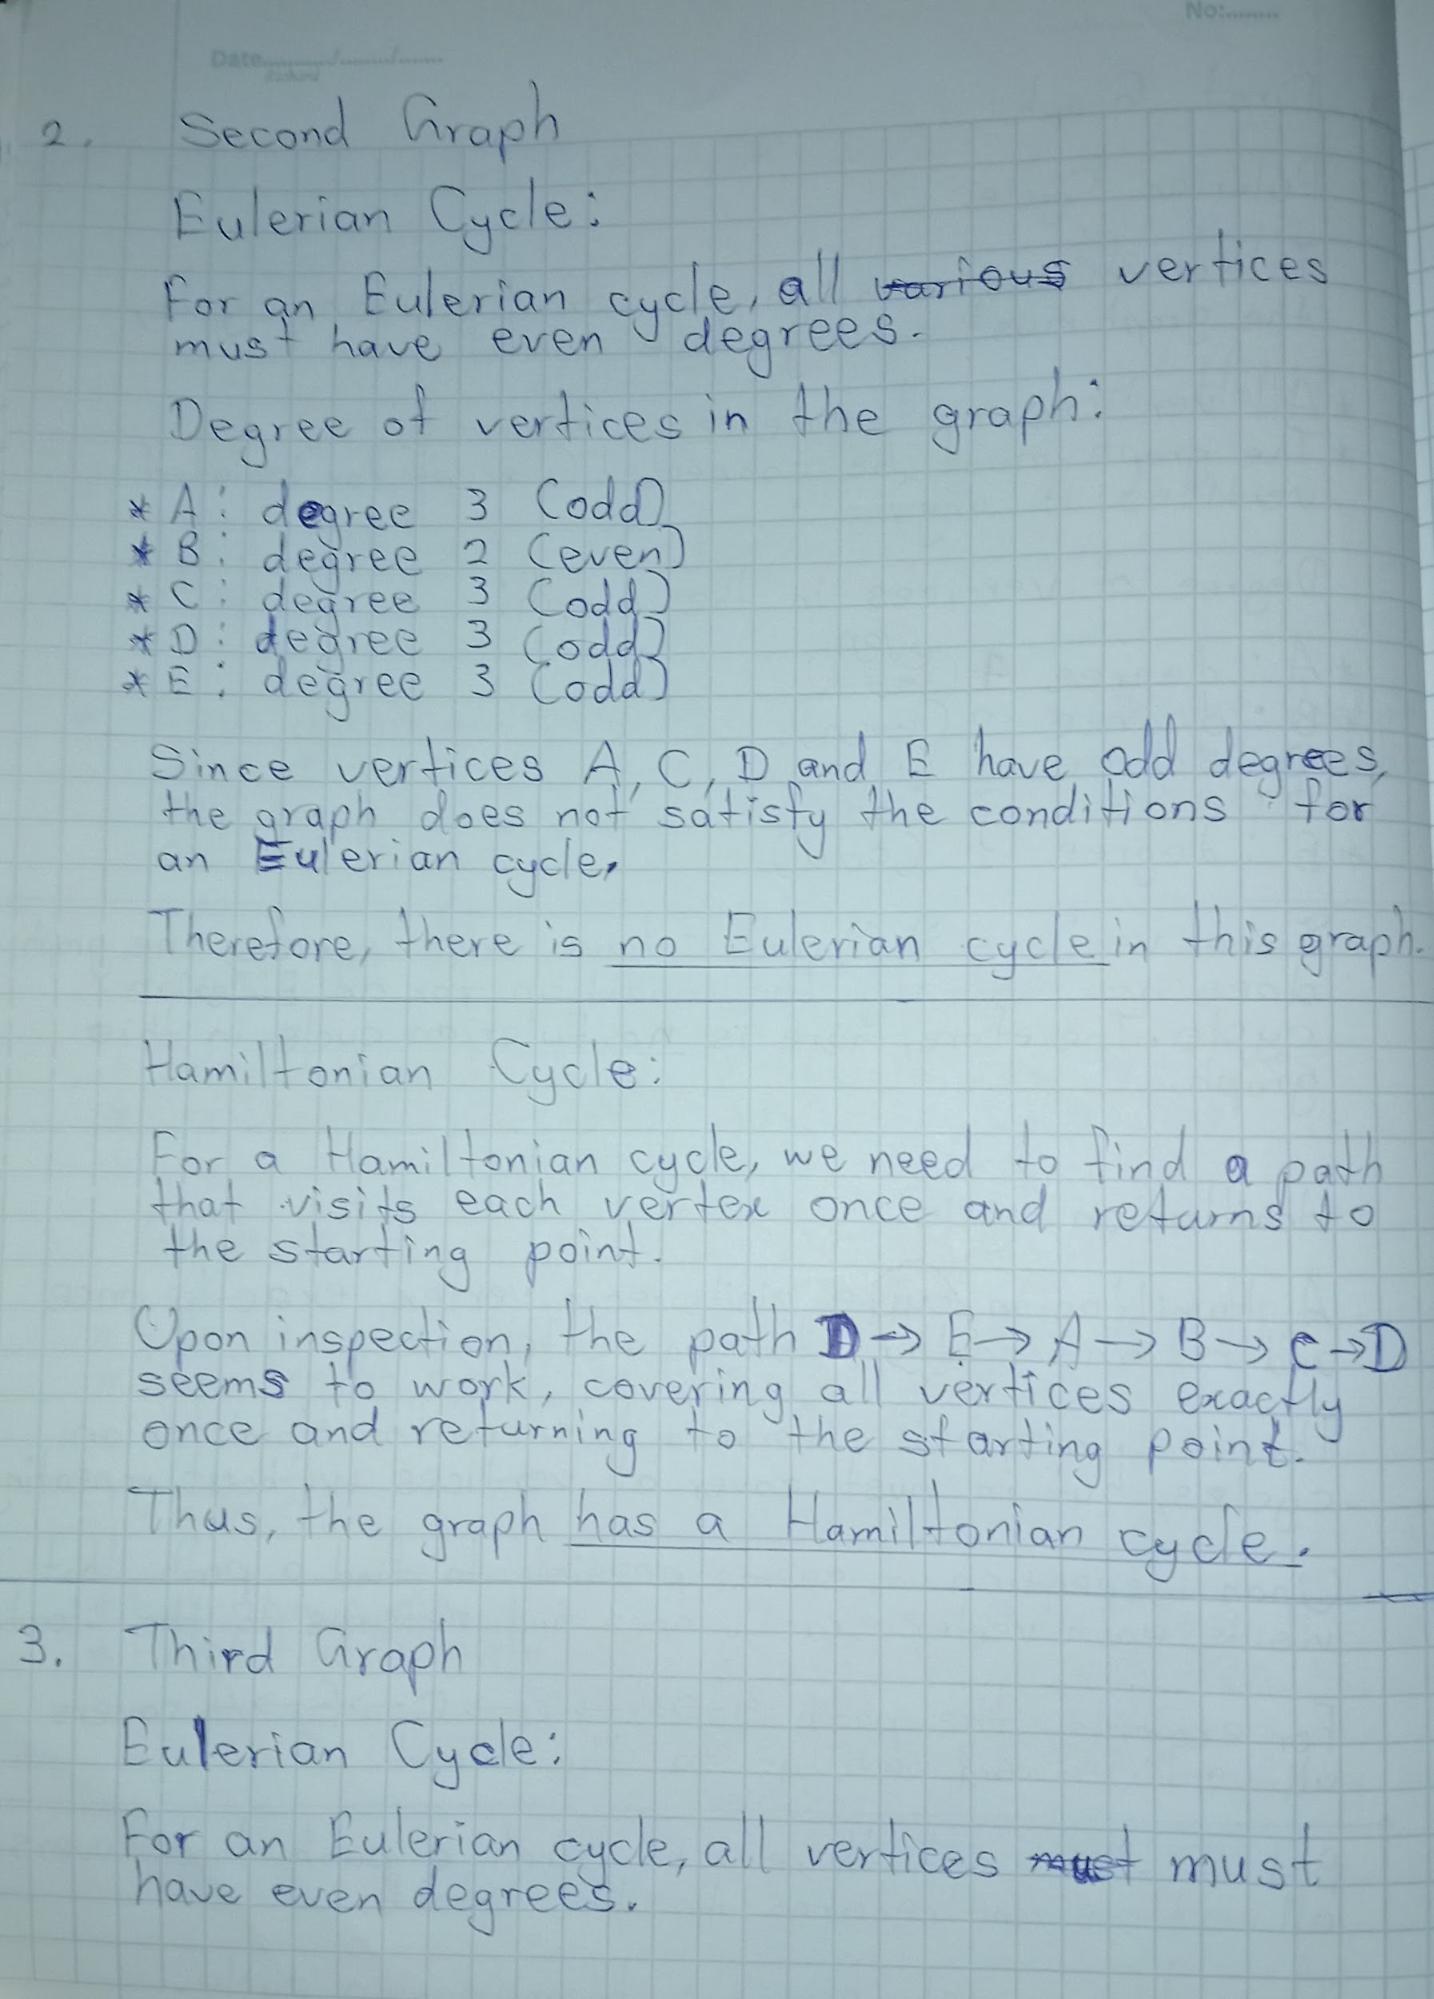 No:........
Date............/........./.........
2. Second Graph
Eulerian Cycle:
For an Eulerian cycle, all various vertices
must have even degrees.
Degree of vertices in the graph:
* A: degree 3 (odd)
* B: degree 2 (even)
* C: degree 3 (odd)
* D: degree 3 (odd)
* E: degree 3 (odd)
Since vertices A, C, D and E have odd degrees,
the graph does not satisfy the conditions for
an Eulerian cycle.
Therefore, there is no Eulerian cycle in this graph.
Hamiltonian Cycle:
For a Hamiltonian cycle, we need to find a path
that visits each vertex once and returns to
the starting point.
Upon inspection, the path D → E → A → B → C → D
seems to work, covering all vertices exactly
once and returning to the starting point.
Thus, the graph has a Hamiltonian cycle.
3. Third Graph
Eulerian Cycle:
For an Eulerian cycle, all vertices must must
have even degrees.